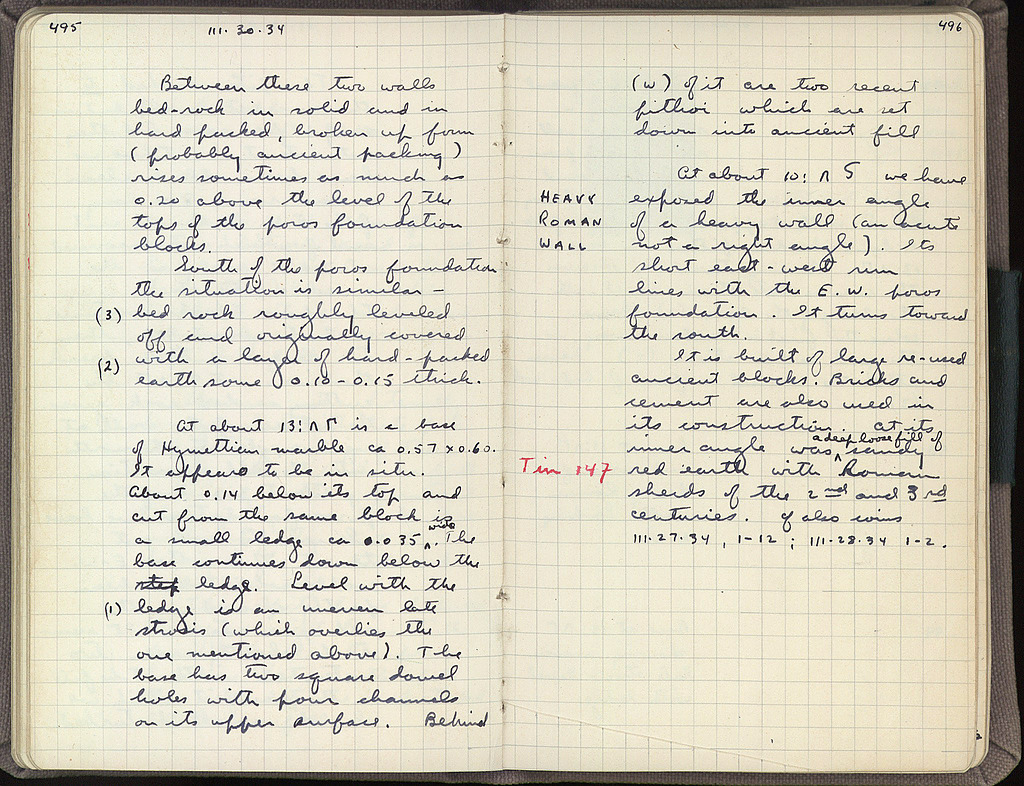 495
III. 30. 34
Between these two walls
bed-rock in solid and in
hard packed, broken up form
(probably ancient packing)
rises sometimes as much as
0.20 above the level of the
tops of the poros foundation
blocks.
South of the poros foundation
the situation is similar -
(3) bed rock roughly leveled
off and originally covered
(2) with a layer of hard-packed
earth some 0.10 - 0.15 thick.
At about 13: ΛΓ is a base
of Hymettian marble ca 0.57 x 0.60.
It appears to be in situ.
About 0.14 below its top and
cut from the same block is
a small ledge ca 0.035 wide. The
base continues down below the
step ledge. Level with the
(1) ledge is an uneven late
strosis (which overlies the
one mentioned above). The
base has two square dowel
holes with pour channels
on its upper surface. Behind
496
(W) of it are two recent
pithoi which are set
down into ancient fill
At about 10: Λ S we have
HEAVY exposed the inner angle
ROMAN of a heavy wall (an acute
WALL not a right angle). Its
short east-west run
lines with the E.W. poros
foundation. It turns toward
the south.
It is built of large re-used
ancient blocks. Bricks and
cement are also used in
its construction. At its
inner angle was a deep loose fill of sandy
Tin 147 red earth with Roman
sherds of the 2nd and 3rd
centuries. cf also coins
III.27.34, 1-12; III.28.34 1-2.